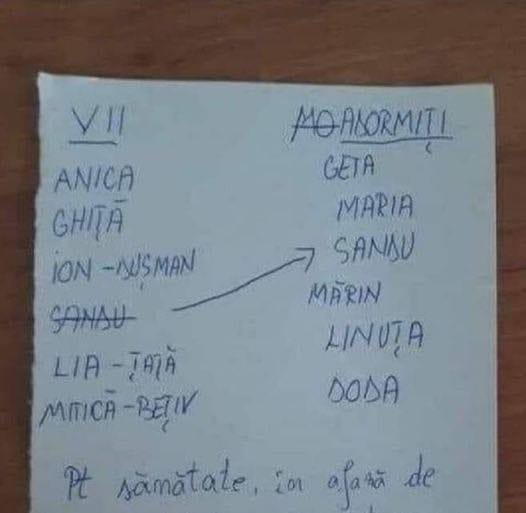 VII
ANICA
GHIȚĂ
ION - DUȘMAN
SANDU
LIA - ȚAȚĂ
MITICĂ - BEȚIV
MOADORMIȚI
GETA
MARIA
SANDU
MĂRIN
LINUȚA
DODA
Pt sămătate, în afară de